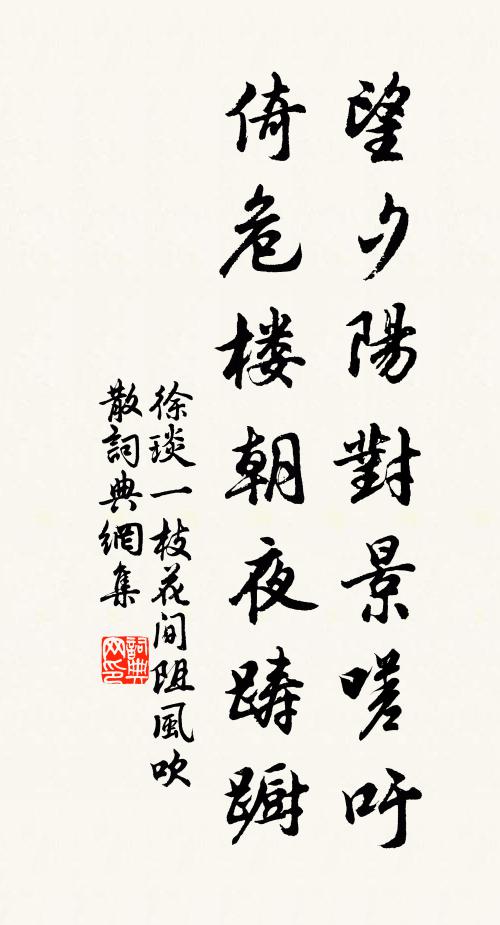 望夕陽對景嗟吁
倚危楼朝夜踌蹰
徐琰一枝花间阻風吹
散詞典網集
詞典网印